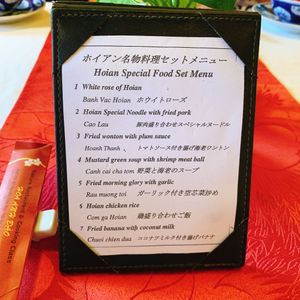 ホイアン名物料理セットメニュー
Hoian Special Food Set Menu
1 White rose of Hoian
Banh Vac Hoian ホワイトローズ
2 Hoian Special Noodle with fried pork
Cao Lau 豚肉盛り合わせスペシャルヌードル
3 Fried wonton with plum sauce
Hoanh Thanh 、トマトソース付き揚げ海老ワントン
4 Mustard green soup with shrimp meat ball
Canh cai cha tom 野菜と海老のスープ
5 Fried morning glory with garlic
Rau muong toi ガーリック付き空芯菜炒め
6 Hoian chicken rice
Com ga Hoian 鶏盛り合わせご飯
7 Fried banana with coconut milk
Chuoi chien dua ココナツミルク付き揚げバナナ
& Cooking Class